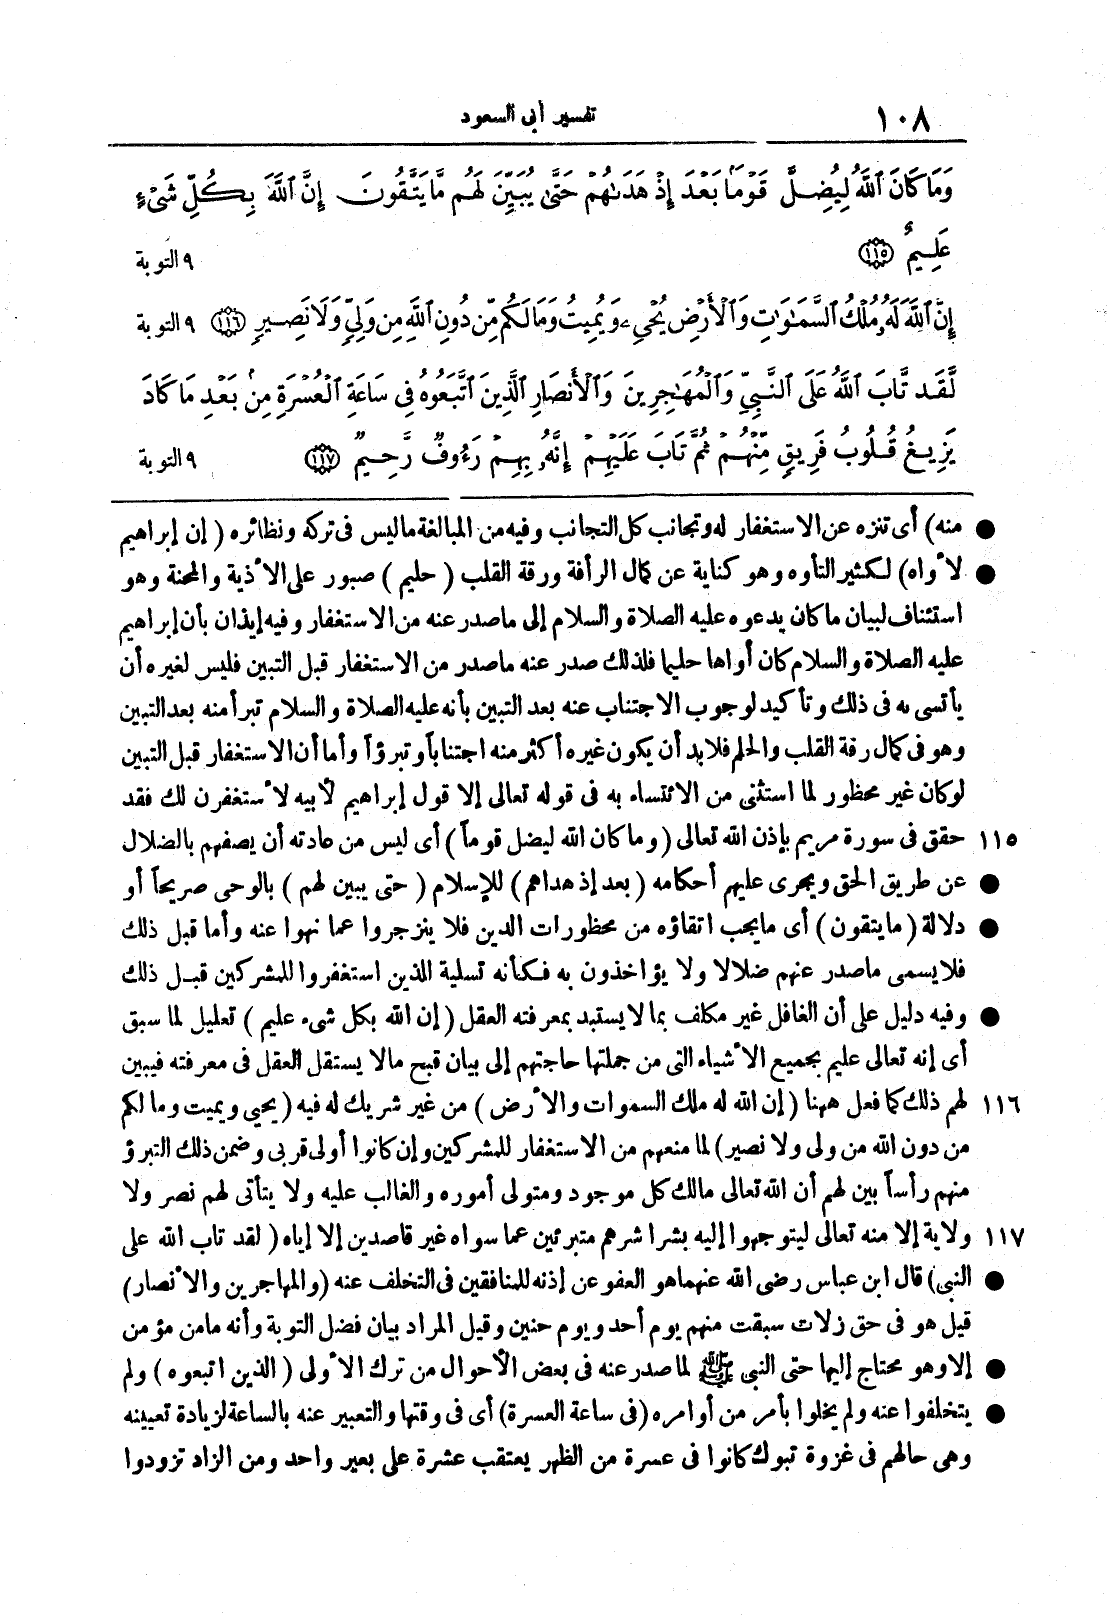 ١٠٨ تفسير أبى السعود
وَمَا كَانَ ٱللَّهُ لِيُضِلَّ قَوْمًۢا بَعْدَ إِذْ هَدَىٰهُمْ حَتَّىٰ يُبَيِّنَ لَهُم مَّا يَتَّقُونَ إِنَّ ٱللَّهَ بِكُلِّ شَىْءٍ
عَلِيمٌ ﴿١١٥﴾ ٩ التوبة
إِنَّ ٱللَّهَ لَهُۥ مُلْكُ ٱلسَّمَـٰوَٰتِ وَٱلْأَرْضِ يُحْىِۦ وَيُمِيتُ وَمَا لَكُم مِّن دُونِ ٱللَّهِ مِن وَلِىٍّ وَلَا نَصِيرٍ ﴿١١٦﴾ ٩ التوبة
لَّقَد تَّابَ ٱللَّهُ عَلَى ٱلنَّبِىِّ وَٱلْمُهَـٰجِرِينَ وَٱلْأَنصَارِ ٱلَّذِينَ ٱتَّبَعُوهُ فِى سَاعَةِ ٱلْعُسْرَةِ مِنۢ بَعْدِ مَا كَادَ
يَزِيغُ قُلُوبُ فَرِيقٍ مِّنْهُمْ ثُمَّ تَابَ عَلَيْهِمْ إِنَّهُۥ بِهِمْ رَءُوفٌ رَّحِيمٌ ﴿١١٧﴾ ٩ التوبة
● منه) أى تنزه عن الاستغفار له وتجانب كل التجانب وفيه من المبالغة ما ليس فى تركه ونظائره ( إن إبراهيم
● لأواه) لكثير التأوه وهو كناية عن كمال الرأفة ورقة القلب ( حليم ) صبور على الأذية والمحنة وهو
استئناف لبيان ما كان يدعوه عليه الصلاة والسلام إلى ما صدر عنه من الاستغفار وفيه إيذان بأن إبراهيم
عليه الصلاة والسلام كان أواها حليما فلذلك صدر عنه ما صدر من الاستغفار قبل التبين فليس لغيره أن
يأتسى به فى ذلك وتأكيد لوجوب الاجتناب عنه بعد التبين بأنه عليه الصلاة والسلام تبرأ منه بعد التبين
وهو فى كمال رقة القلب والحلم فلابد أن يكون غيره أكثر منه اجتناباً وتبرؤاً وأما أن الاستغفار قبل التبين
لو كان غير محظور لما استثنى من الائتساء به فى قوله تعالى إلا قول إبراهيم لأبيه لأستغفرن لك فقد
١١٥ حقق فى سورة مريم بإذن الله تعالى ( وما كان الله ليضل قوماً ) أى ليس من عادته أن يصفهم بالضلال
● عن طريق الحق ويجرى عليهم أحكامه ( بعد إذ هداهم ) للإسلام ( حتى يبين لهم ) بالوحى صريحاً أو
● دلالة ( ما يتقون ) أى ما يجب اتقاؤه من محظورات الدين فلا ينزجروا عما نهوا عنه وأما قبل ذلك
فلا يسمى ما صدر عنهم ضلالا ولا يؤاخذون به فكأنه تسلية الذين استغفروا للمشركين قبل ذلك
● وفيه دليل على أن الغافل غير مكلف بما لا يستبد بمعرفته العقل ( إن الله بكل شىء عليم ) تعليل لما سبق
أى إنه تعالى عليم بجميع الأشياء التى من جملتها حاجتهم إلى بيان قبح ما لا يستقل العقل فى معرفته فيبين
١١٦ لهم ذلك كما فعل ههنا ( إن الله له ملك السموات والأرض ) من غير شريك له فيه ( يحيي ويميت وما لكم
من دون الله من ولى ولا نصير ) لما منعهم من الاستغفار للمشركين وإن كانوا أولى قربى وضمن ذلك التبرؤ
منهم رأساً بين لهم أن الله تعالى مالك كل موجود ومتولى أموره والغالب عليه ولا يتأتى لهم نصر ولا
١١٧ ولاية إلا منه تعالى ليتوجهوا إليه بشراشرهم متبرئين عما سواه غير قاصدين إلا إياه ( لقد تاب الله على
● النبى) قال ابن عباس رضى الله عنهما هو العفو عن إذنه للمنافقين فى التخلف عنه ( والمهاجرين والأنصار )
قيل هو فى حق زلات سبقت منهم يوم أحد ويوم حنين وقيل المراد بيان فضل التوبة وأنه ما من مؤمن
● إلا وهو محتاج إليها حتى النبى ﷺ لما صدر عنه فى بعض الأحوال من ترك الأولى ( الذين اتبعوه ) ولم
● يتخلفوا عنه ولم يخلوا بأمر من أوامره ( فى ساعة العسرة ) أى فى وقتها والتعبير عنه بالساعة لزيادة تعيينه
وهى حالهم فى غزوة تبوك كانوا فى عسرة من الظهر يعتقب عشرة على بعير واحد ومن الزاد تزودوا